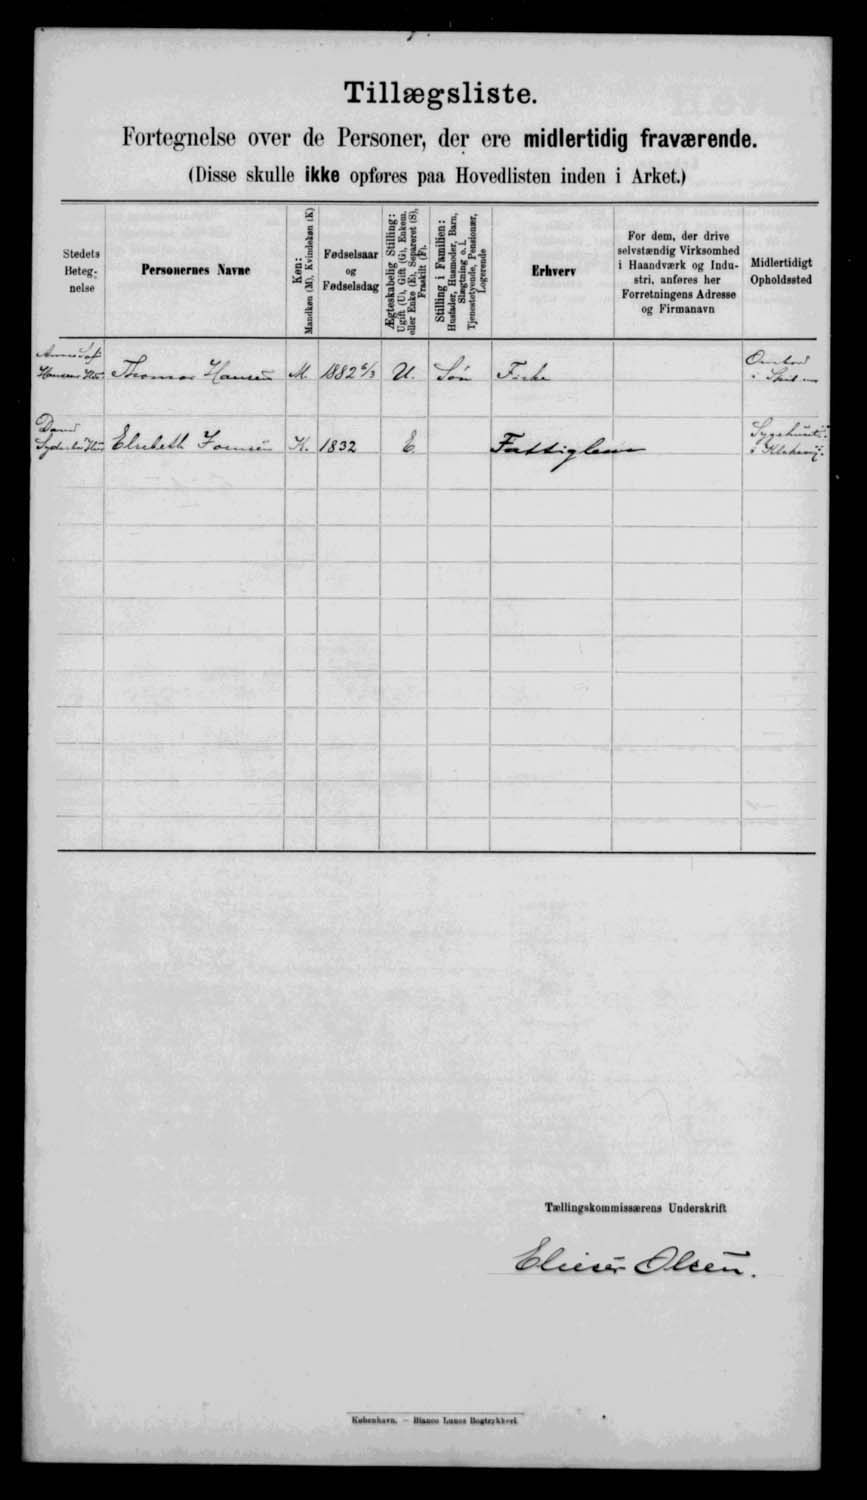 Tillægsliste.
Fortegnelse over de Personer, der ere midlertidig fraværende.
(Disse skulle ikke opføres paa Hovedlisten inden i Arket.)
Stedets
Beteg-
nelse
Personernes Navne
Køn:
Mandkøn (M), Kvindekøn (K)
Fødselsaar
og
Fødselsdag
Ægteskabelig Stilling:
Ugift (U), Gift (G), Enkem.
eller Enke (E), Separeret (S),
Fraskilt (F).
Stilling i Familien:
Husfader, Husmoder, Barn,
Slægtning o. l.
Tjenestetyende, Pensionær,
Logerende
Erhverv
For dem, der drive
selvstændig Virksomhed
i Haandværk og Indu-
stri, anføres her
Forretningens Adresse
og Firmanavn
Midlertidigt
Opholdssted
Hansens Hus. Thomas Hansen M. 1882 U. Søn Ombord
i
Elsebeth Joensen K. 1832 E. Fattiglem Sygehuset
i Klaksvig.
Tællingskommissærens Underskrift
Elieser Olsen.
København. – Bianco Lunos Bogtrykkeri